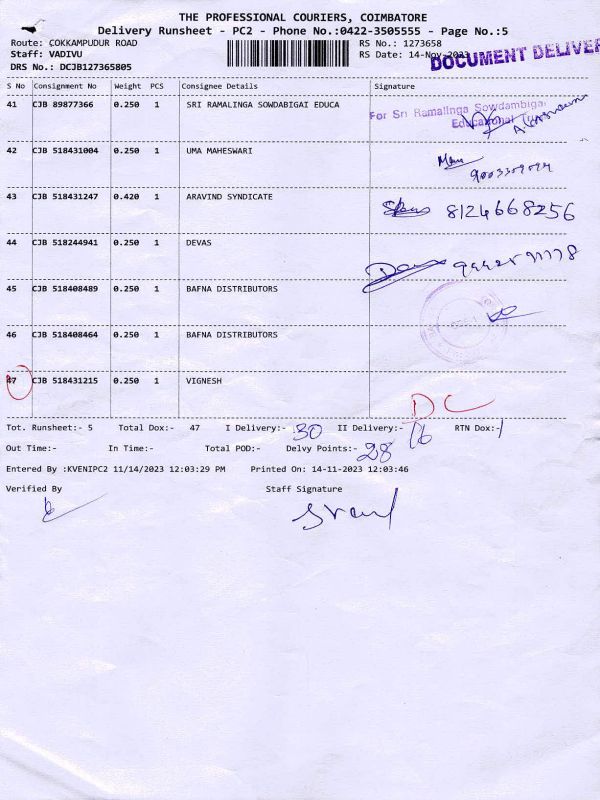 THE PROFESSIONAL COURIERS, COIMBATORE
Delivery Runsheet - PC2 - Phone No.:0422-3505555 - Page No.:5
Route: COKKAMPUDUR ROAD RS No.: 1273658
Staff: VADIVU RS Date: 14-Nov-2023
DOCUMENT DELIVER
DRS No.: DCJB127365805
S No Consignment No Weight PCS Consignee Details Signature
41 CJB 89877366 0.250 1 SRI RAMALINGA SOWDABIGAI EDUCA
For Sri Ramalinga Sowdambigai
Educational
42 CJB 518431004 0.250 1 UMA MAHESWARI
43 CJB 518431247 0.420 1 ARAVIND SYNDICATE 8124668256
44 CJB 518244941 0.250 1 DEVAS
45 CJB 518408489 0.250 1 BAFNA DISTRIBUTORS
46 CJB 518408464 0.250 1 BAFNA DISTRIBUTORS
47 CJB 518431215 0.250 1 VIGNESH
DC
Tot. Runsheet:- 5 Total Dox:- 47 I Delivery:- 30 II Delivery:- 16 RTN Dox:- 1
Out Time:- In Time:- Total POD:- Delvy Points:- 28
Entered By :KVENIPC2 11/14/2023 12:03:29 PM Printed On: 14-11-2023 12:03:46
Verified By Staff Signature